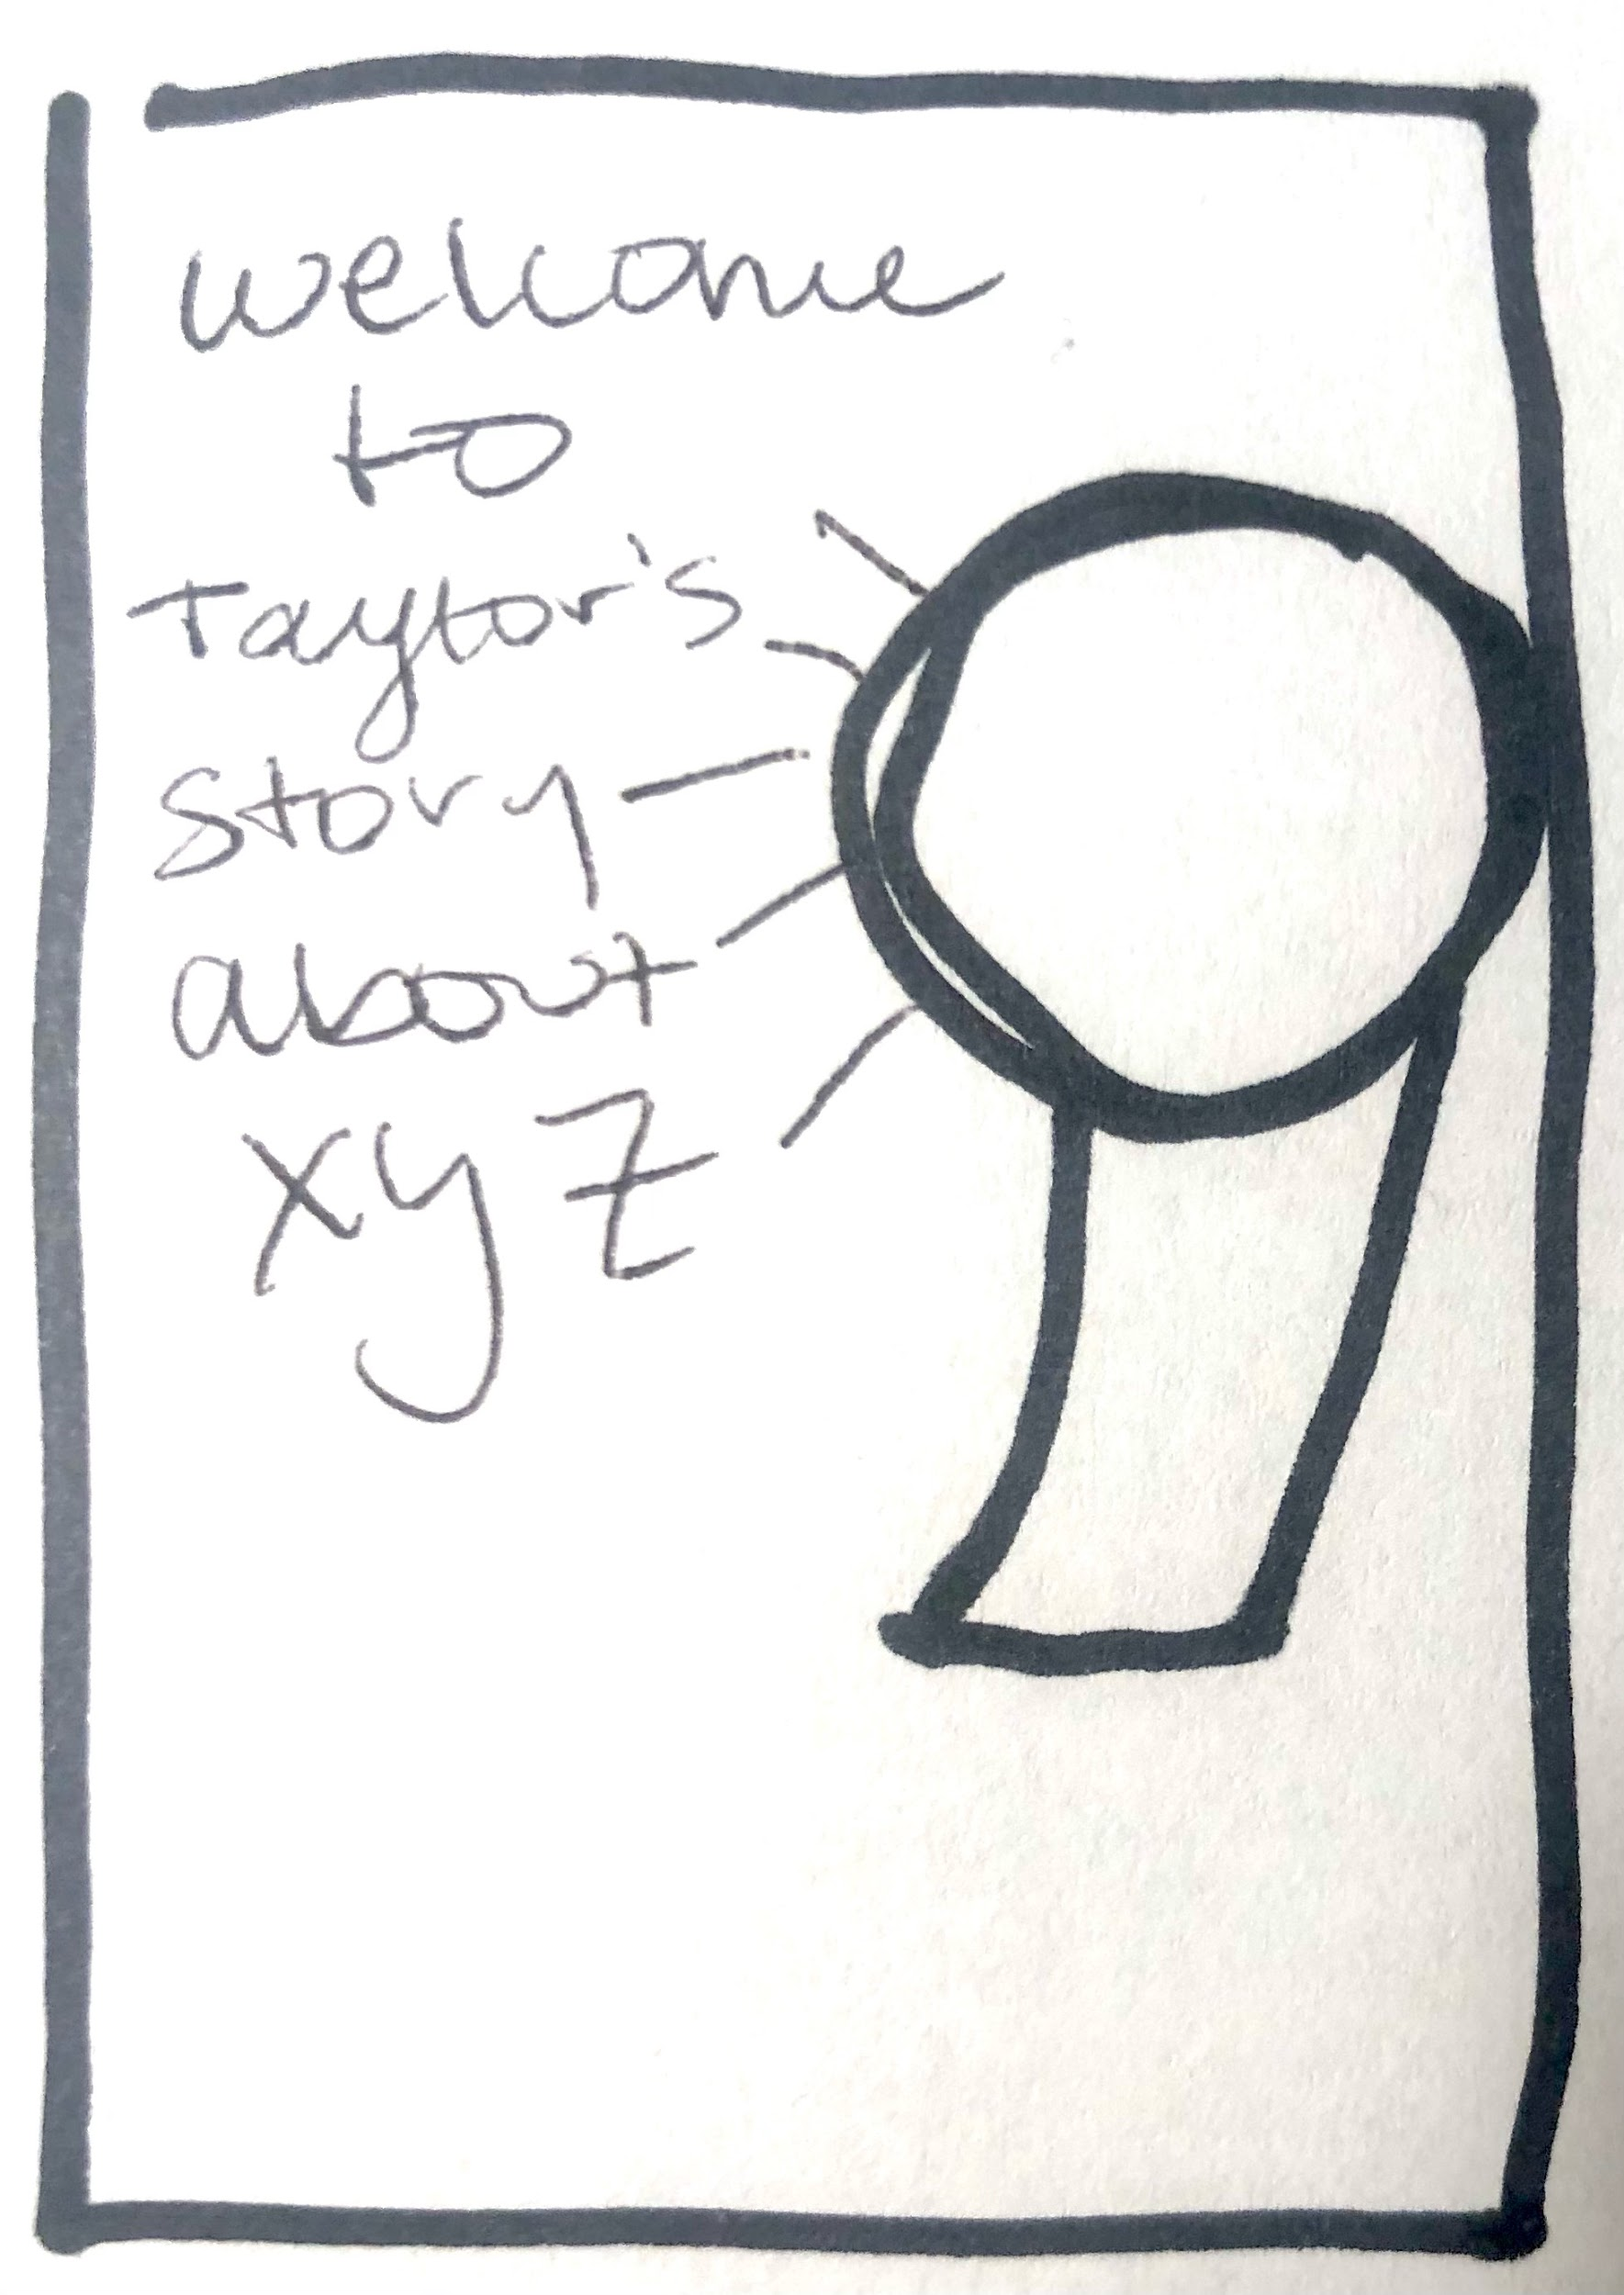 welcome
to
Taylor's
story
about
xyz